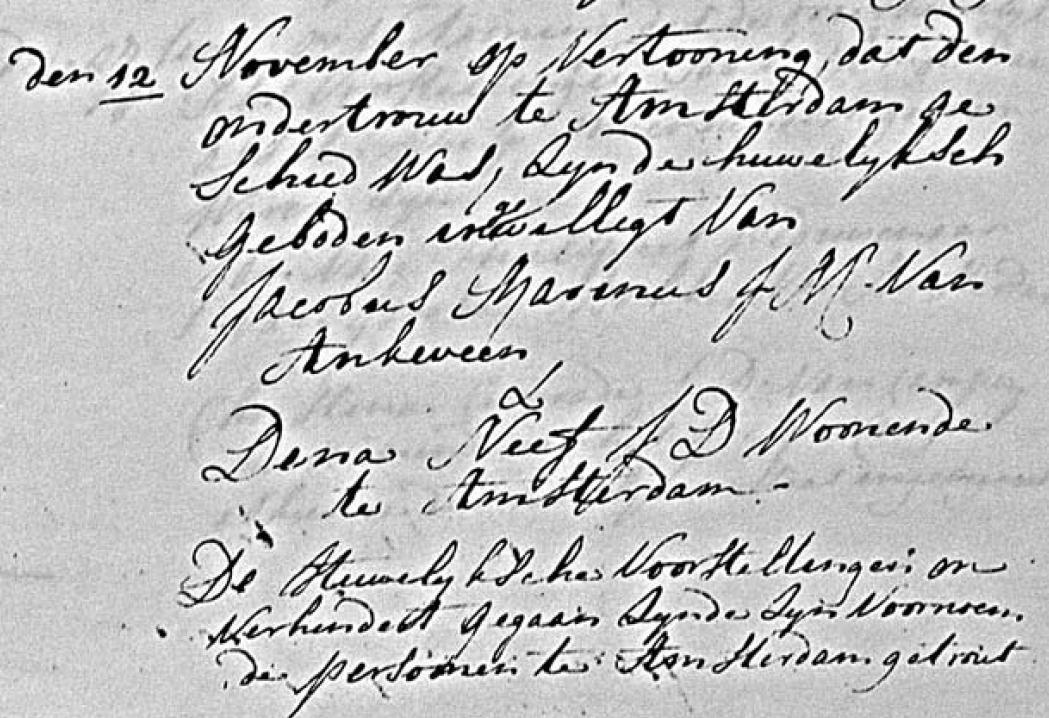 den 12 November op Vertooning, dat den
ondertrouw te Amsterdam ge
schied was, Zyn de huwelyksch
geboden ingewillegt Van
Jacobus Marinus J M. Van
Ankeveen
&
Dena Neef J D Woonende
te Amsterdam.-
De Huwelyksche Voorstellingen on
verhindert gegaan Zynde Zyn Voornoem
de persoonen te Amsterdam getrout